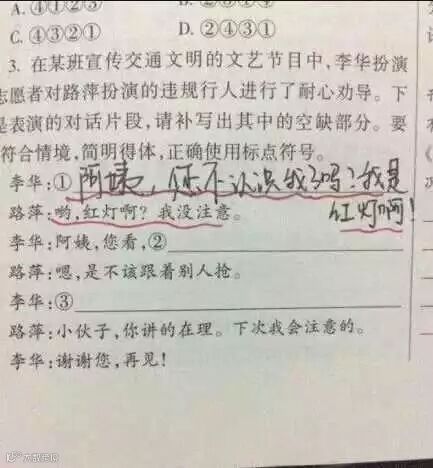 A.④①②③
D.②③①④
C.④③②①
D.②④③①
3. 在某班宣传交通文明的文艺节目中,李华扮演
志愿者对路萍扮演的违规行人进行了耐心劝导。下
是表演的对话片段,请补写出其中的空缺部分。要
符合情境,简明得体,正确使用标点符号。
李华:①阿姨,你不认识我了吗?我是
红灯啊!
路萍:哟,红灯啊?我没注意。
李华:阿姨,您看,②
路萍:嗯,是不该跟着别人抢。
李华:③
路萍:小伙子,你讲的在理。下次我会注意的。
李华:谢谢您,再见!